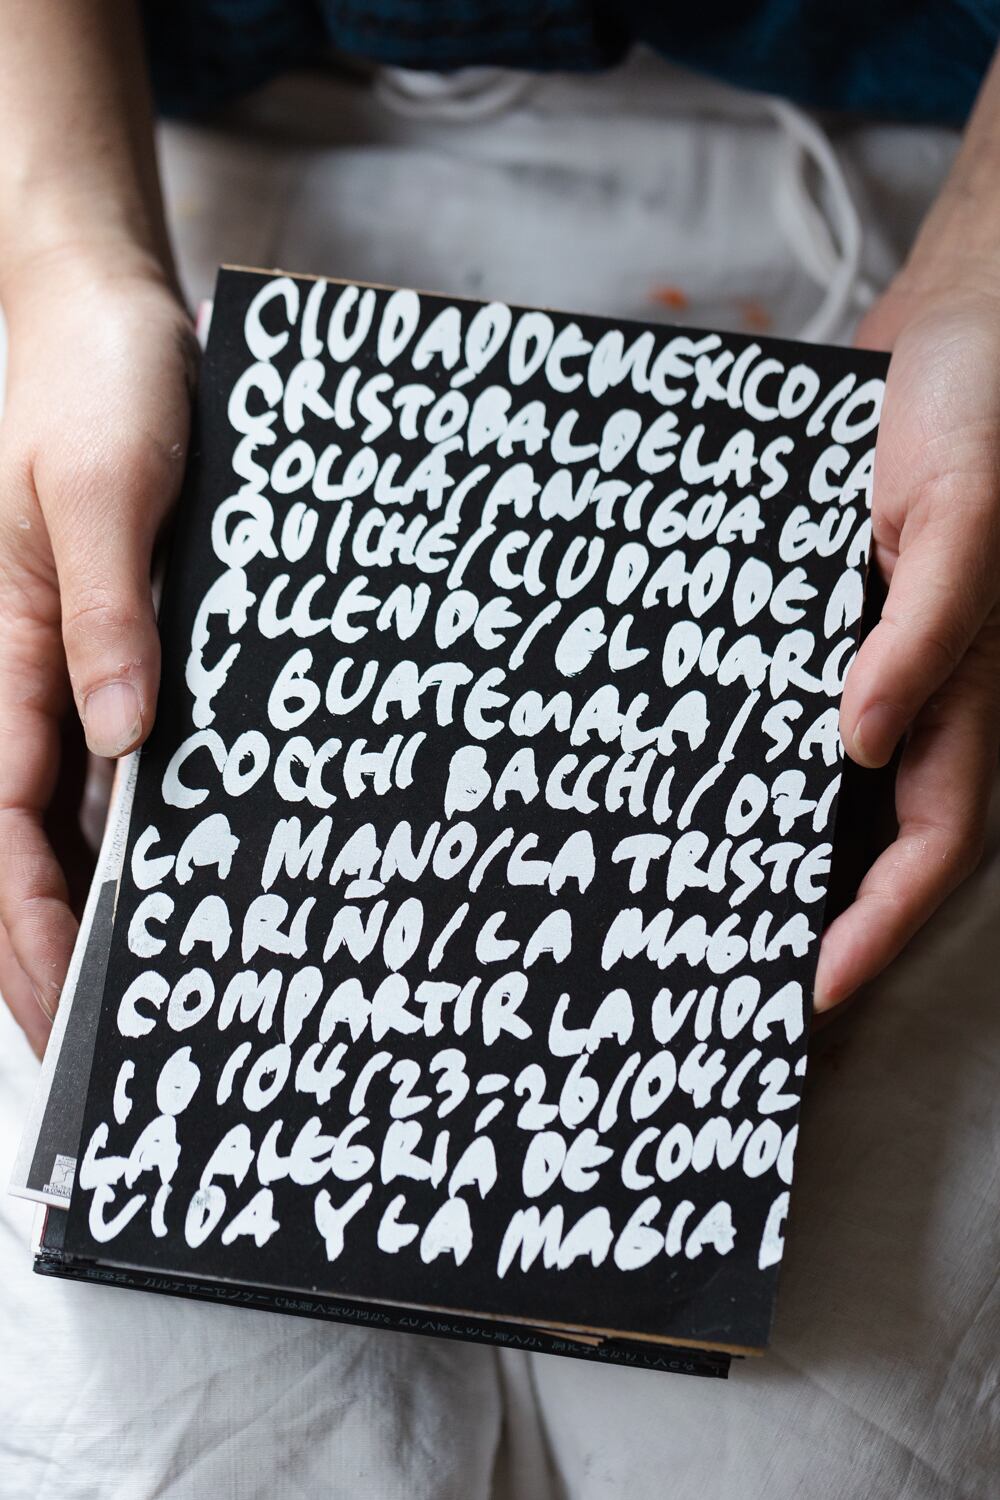 CIUDAD DE MÉXICO/O
CRISTÓBAL DE LAS CA
SOLOLÁ/ANTIGUA GUA
QUICHÉ/CIUDAD DE M
ALLENDE/EL DIARIO
Y GUATEMALA/SAN
COCCHI BACCHI/071
LA MANO/LA TRISTE
CARIÑO/LA MAGIA
COMPARTIR LA VIDA
16/04/23-26/04/2
LA ALEGRIA DE CONOC
VIDA Y LA MAGIA D